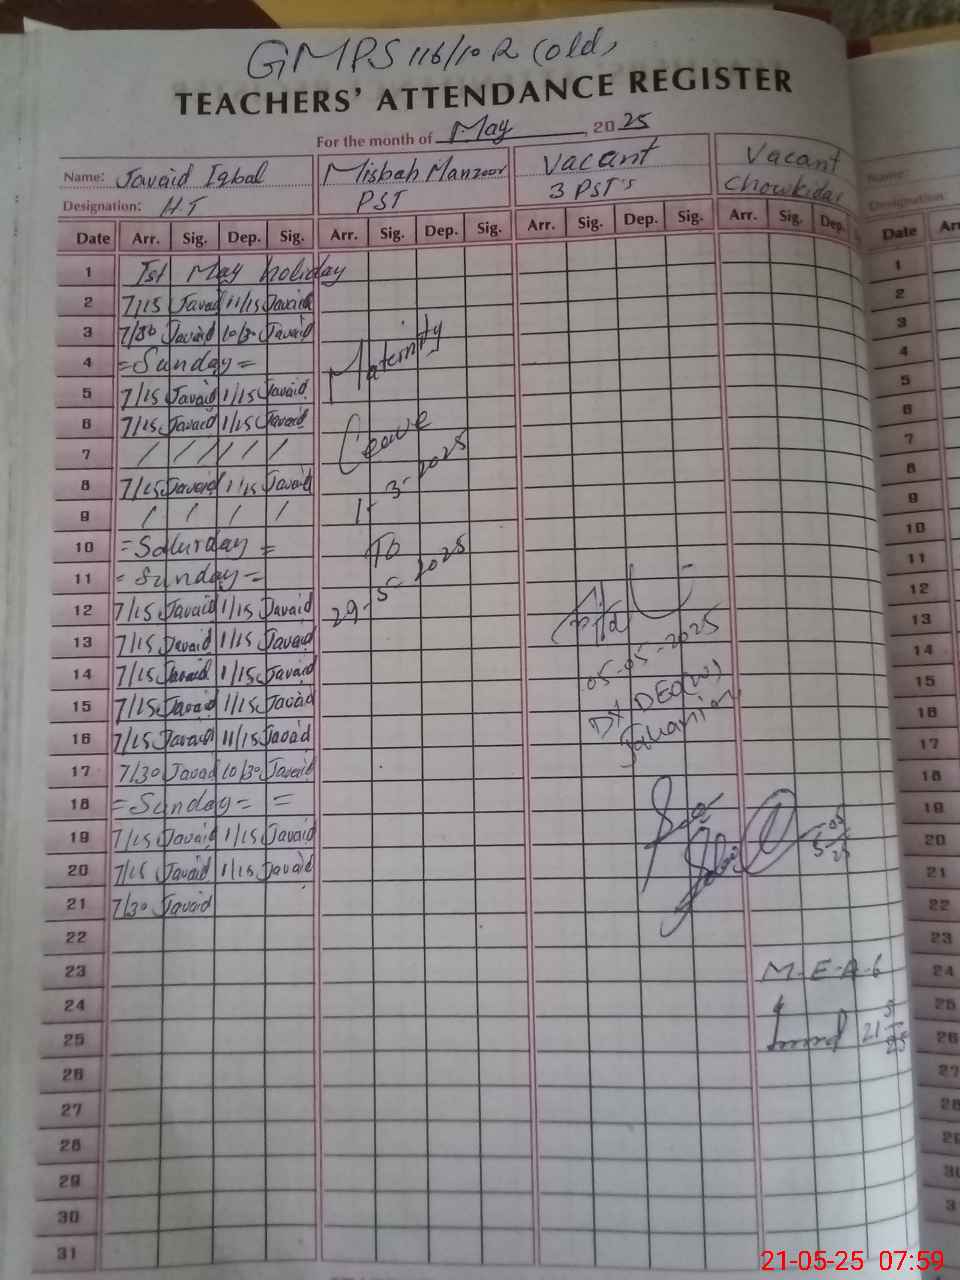 GMPS 116/10 R (old)
TEACHERS' ATTENDANCE REGISTER
For the month of May, 2025
Name: Javaid Iqbal Misbah Manzoor Vacant Vacant Name:
Designation: HT PST 3 PST's Chowkidar Designation:
Date Arr. Sig. Dep. Sig. Arr. Sig. Dep. Sig. Arr. Sig. Dep. Sig. Arr. Sig. Dep. Date Arr
1 Ist May holiday 1
2 7/15 Javaid 11/15 Javaid 2
3 7/30 Javaid 10/30 Javaid 3
4 = Sunday = Maternity 4
5 7/15 Javaid 1/15 Javaid 5
6 7/15 Javaid 1/15 Javaid Leave 6
7 / / / / / 7
8 7/15 Javaid 1/15 Javaid 1-3-2025 8
9 / / / / 9
10 = Saturday = To 10
11 = Sunday = 11
12 7/15 Javaid 1/15 Javaid 29-5-2025 12
13 7/15 Javaid 1/15 Javaid 05-05-2025 13
14 7/15 Javaid 1/15 Javaid 14
15 7/15 Javaid 1/15 Javaid Dy DEO(W) 15
16 7/15 Javaid 11/15 Javaid Jahanian 16
17 7/30 Javaid 10/30 Javaid 17
18 = Sunday = = 18
19 7/15 Javaid 1/15 Javaid 5-05-25 19
20 7/15 Javaid 1/15 Javaid 20
21 7/30 Javaid 21
22 22
23 M-E-A-6 23
24 24
25 21-5-25 25
26 26
27 27
28 28
29 29
30 30
31 31
21-05-25 07:59